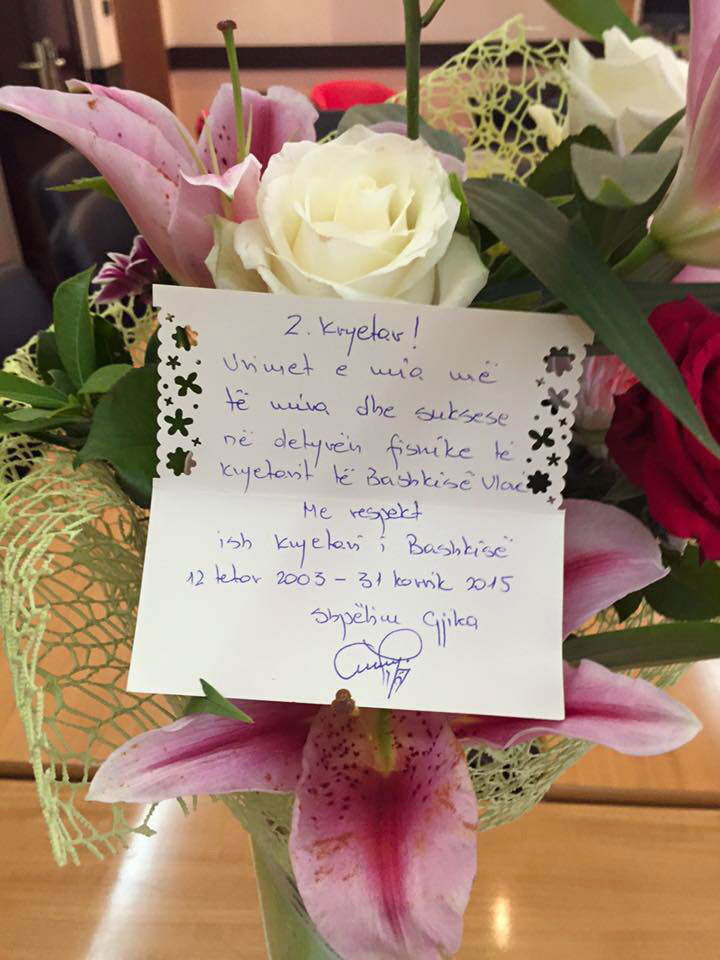 Z. Kryetar!
Urimet e mia më
të mira dhe suksese
në detyrën fisnike të
kryetarit të Bashkisë Vlorë
Me respekt
ish kryetari i Bashkisë
12 tetor 2003 - 31 korrik 2015
Shpëtim Gjika